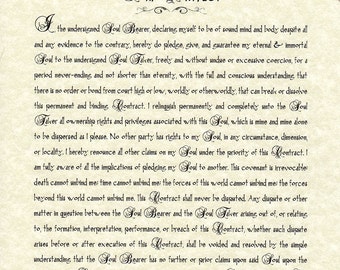 I, the undersigned Soul Bearer, declaring myself to be of sound mind and body despite all
and any evidence to the contrary, hereby do pledge, give, and guarantee my eternal & immortal
Soul to the undersigned Soul Taker, freely and without undue or excessive coercion, for a
period never-ending and not shorter than eternity, with the full and conscious understanding that
there is no order or bond from court high or low, worldly or otherworldly, that can break or dissolve
this permanent and binding Contract. I relinquish permanently and completely unto the Soul
Taker all ownership rights and privileges associated with this Soul, which is mine and mine alone
to be dispersed as I please. No other party has rights to my Soul, in any circumstance, dimension
or locality. I hereby renounce all other claims on my Soul under the priority of this Contract. I
am fully aware of all the implications of pledging my Soul to another. This covenant is irrevocable:
death cannot unbind me; time cannot unbind me; the forces of this world cannot unbind me; the forces
beyond this world cannot unbind me. This Contract shall never be disputed. Any dispute or other
matter in question between the Soul Bearer and the Soul Taker arising out of, or relating
to, the formation, interpretation, performance, or breach of this Contract, whether such dispute
arises before or after execution of this Contract, shall be voided and resolved by the simple
understanding that the Soul Bearer has no further or prior claims upon said Soul, as the